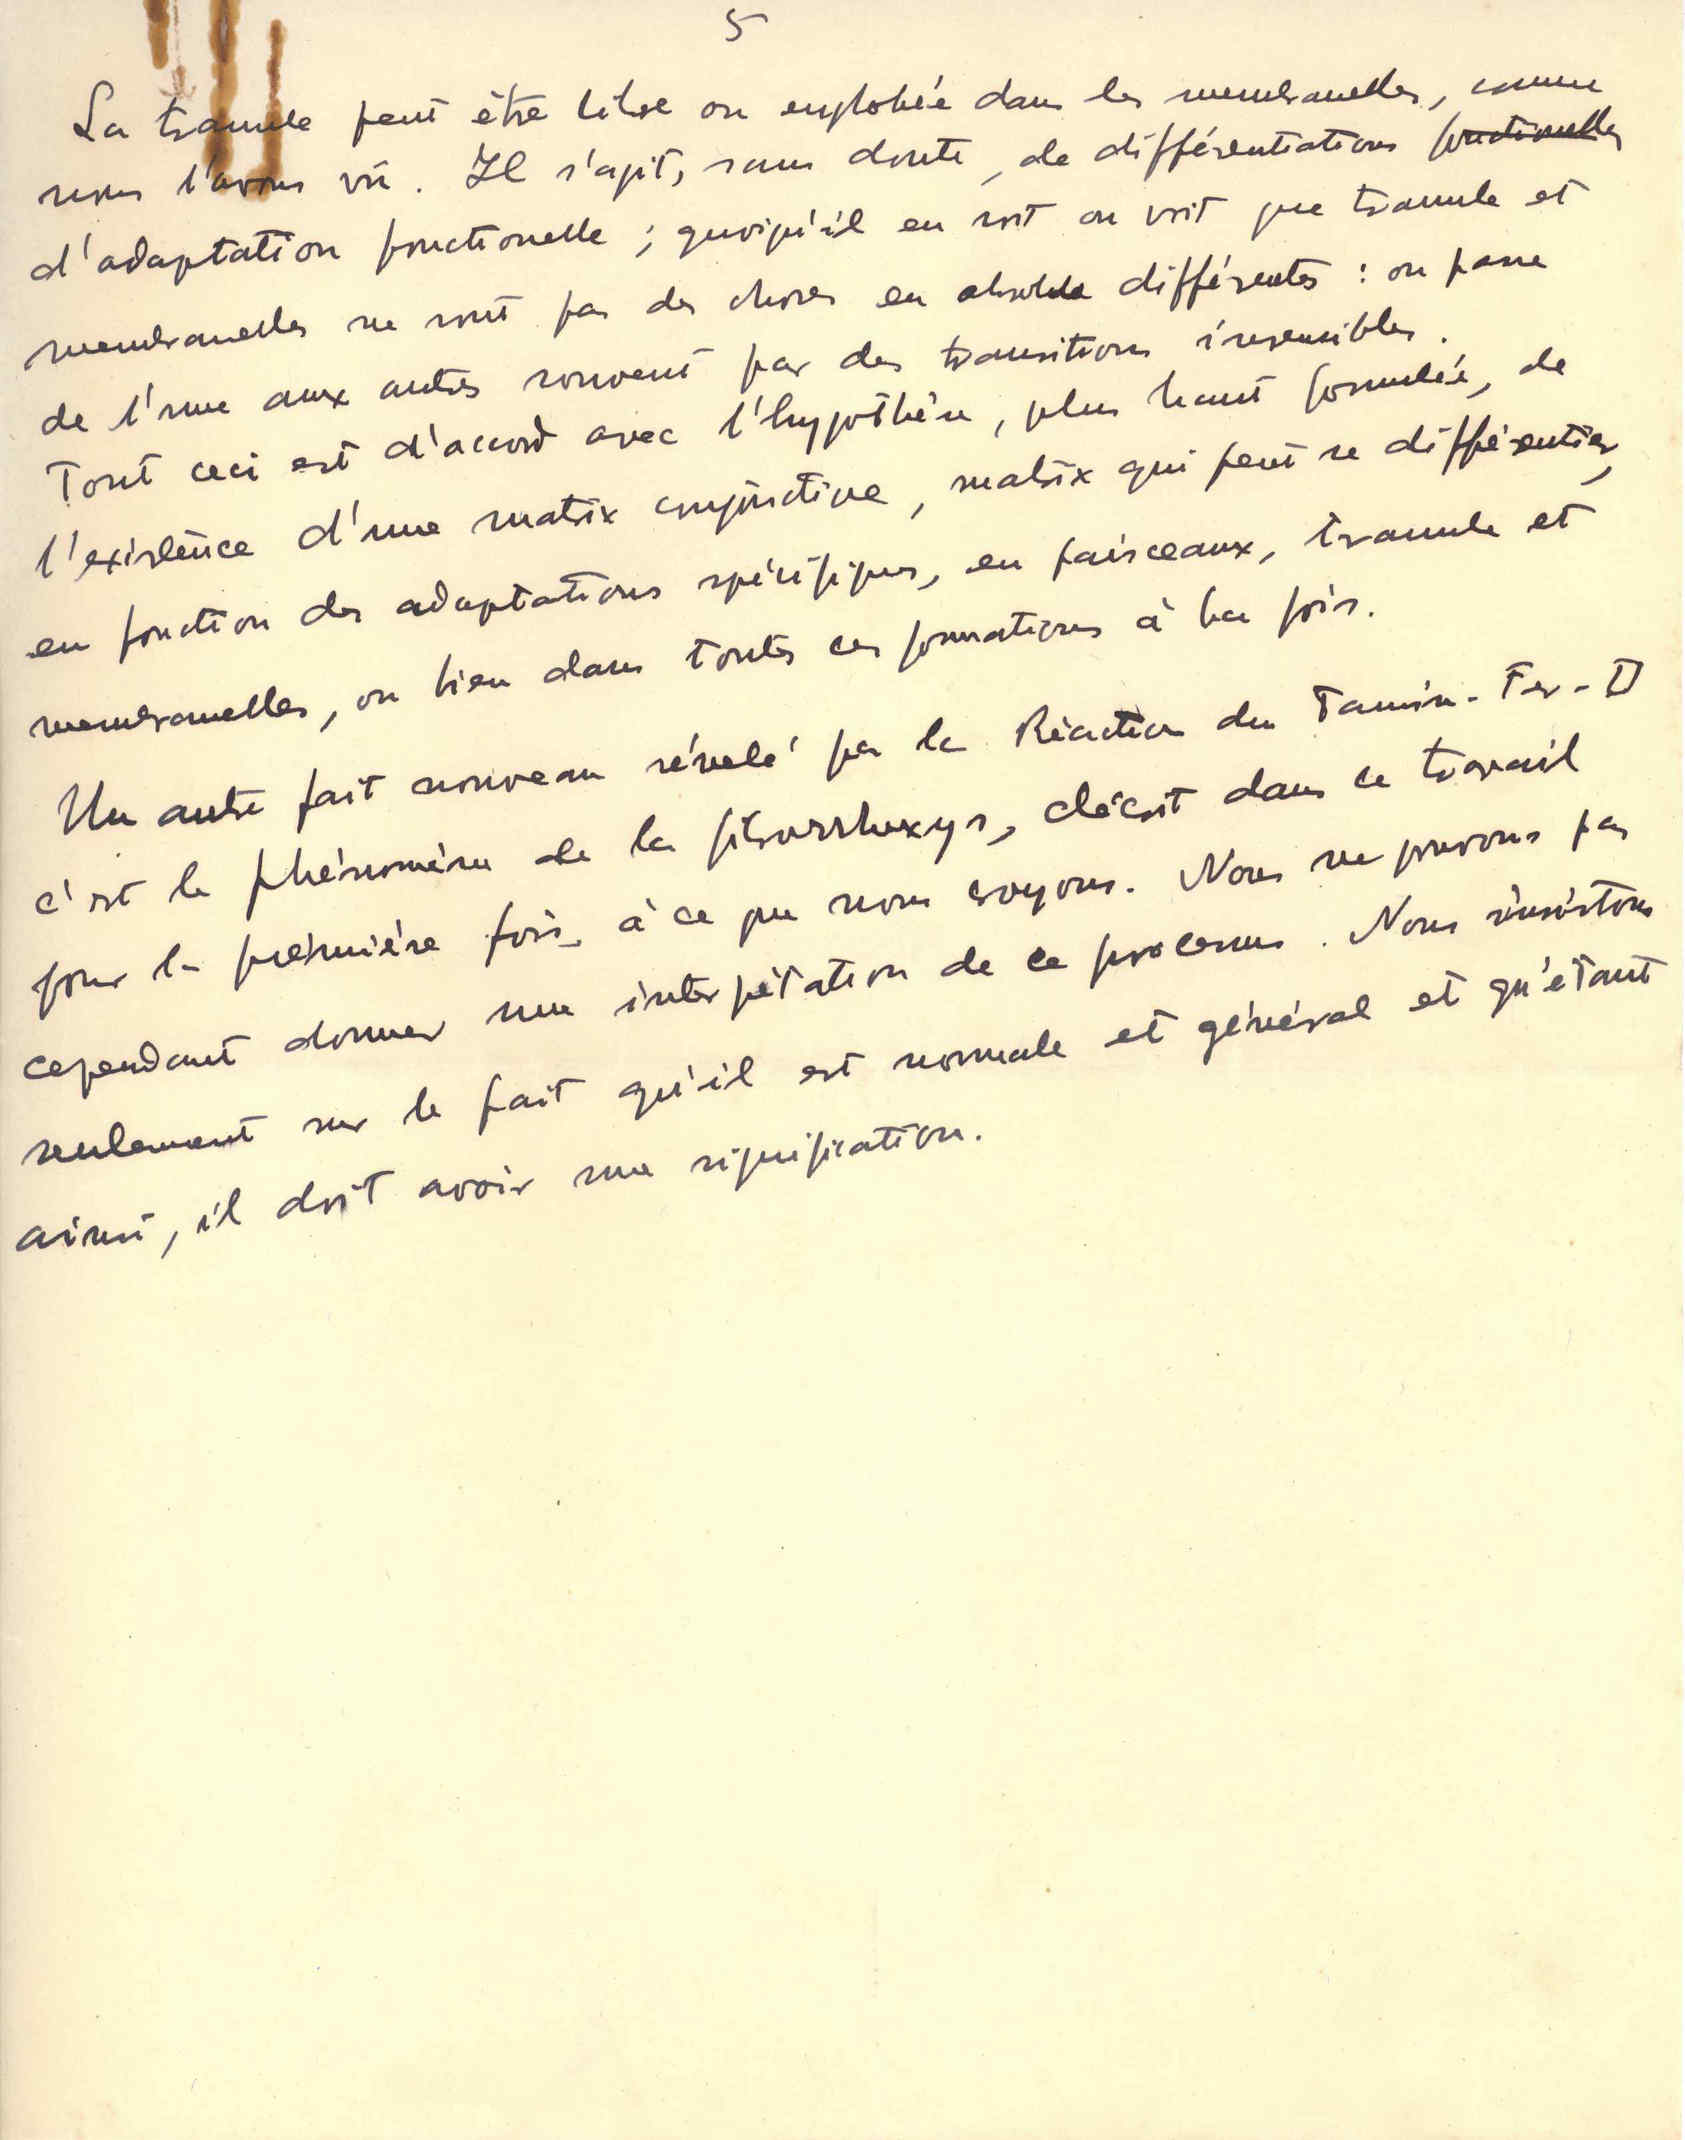 5
La tramule peut être libre ou englobée dans les membranelles, comme
nous l'avons vû. Il s'agit, sans doute, de différentiations fonctionelles
d'adaptation fonctionelle ; quoiqu'il en soit on voit que tramule et
membranelles ne sont pas des choses en absolu différentes : on passe
de l'une aux autres souvent par des transitions insensibles.
Tout ceci est d'accord avec l'hypothèse, plus haut formulée, de
l'existence d'une matrix conjonctive, matrix qui peut se différentier,
en fonction des adaptations spécifiques, en faisceaux, tramule et
membranelles, ou bien dans toutes ces formations à la fois.
Un autre fait nouveau révelé par la Réaction du Tannin-Fer-D
c'est le phénomène de la fibrorrhexys, décrit dans ce travail
pour la prémière fois, à ce que nous croyons. Nous ne pouvons pas
cependant donner une interpétation de ce processus. Nous insistons
seulement sur le fait qu'il est normale et général et qu'étant
ainsi, il doit avoir une signification.